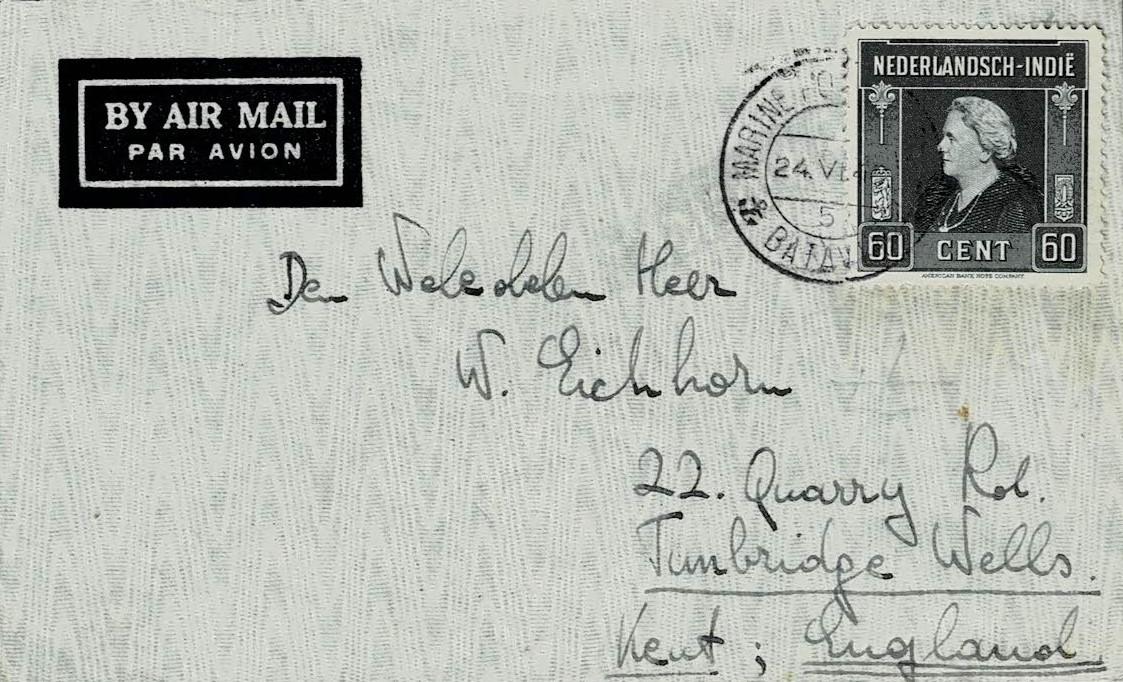 BY AIR MAIL
PAR AVION
NEDERLANDSCH-INDIË
60 CENT 60
AMERICAN BANK NOTE COMPANY
MARINE PO
24.VI.4
5
BATAV
Den Weledelen Heer
W. Eichhorn
22. Quarry Rd.
Tunbridge Wells.
Kent ; England.